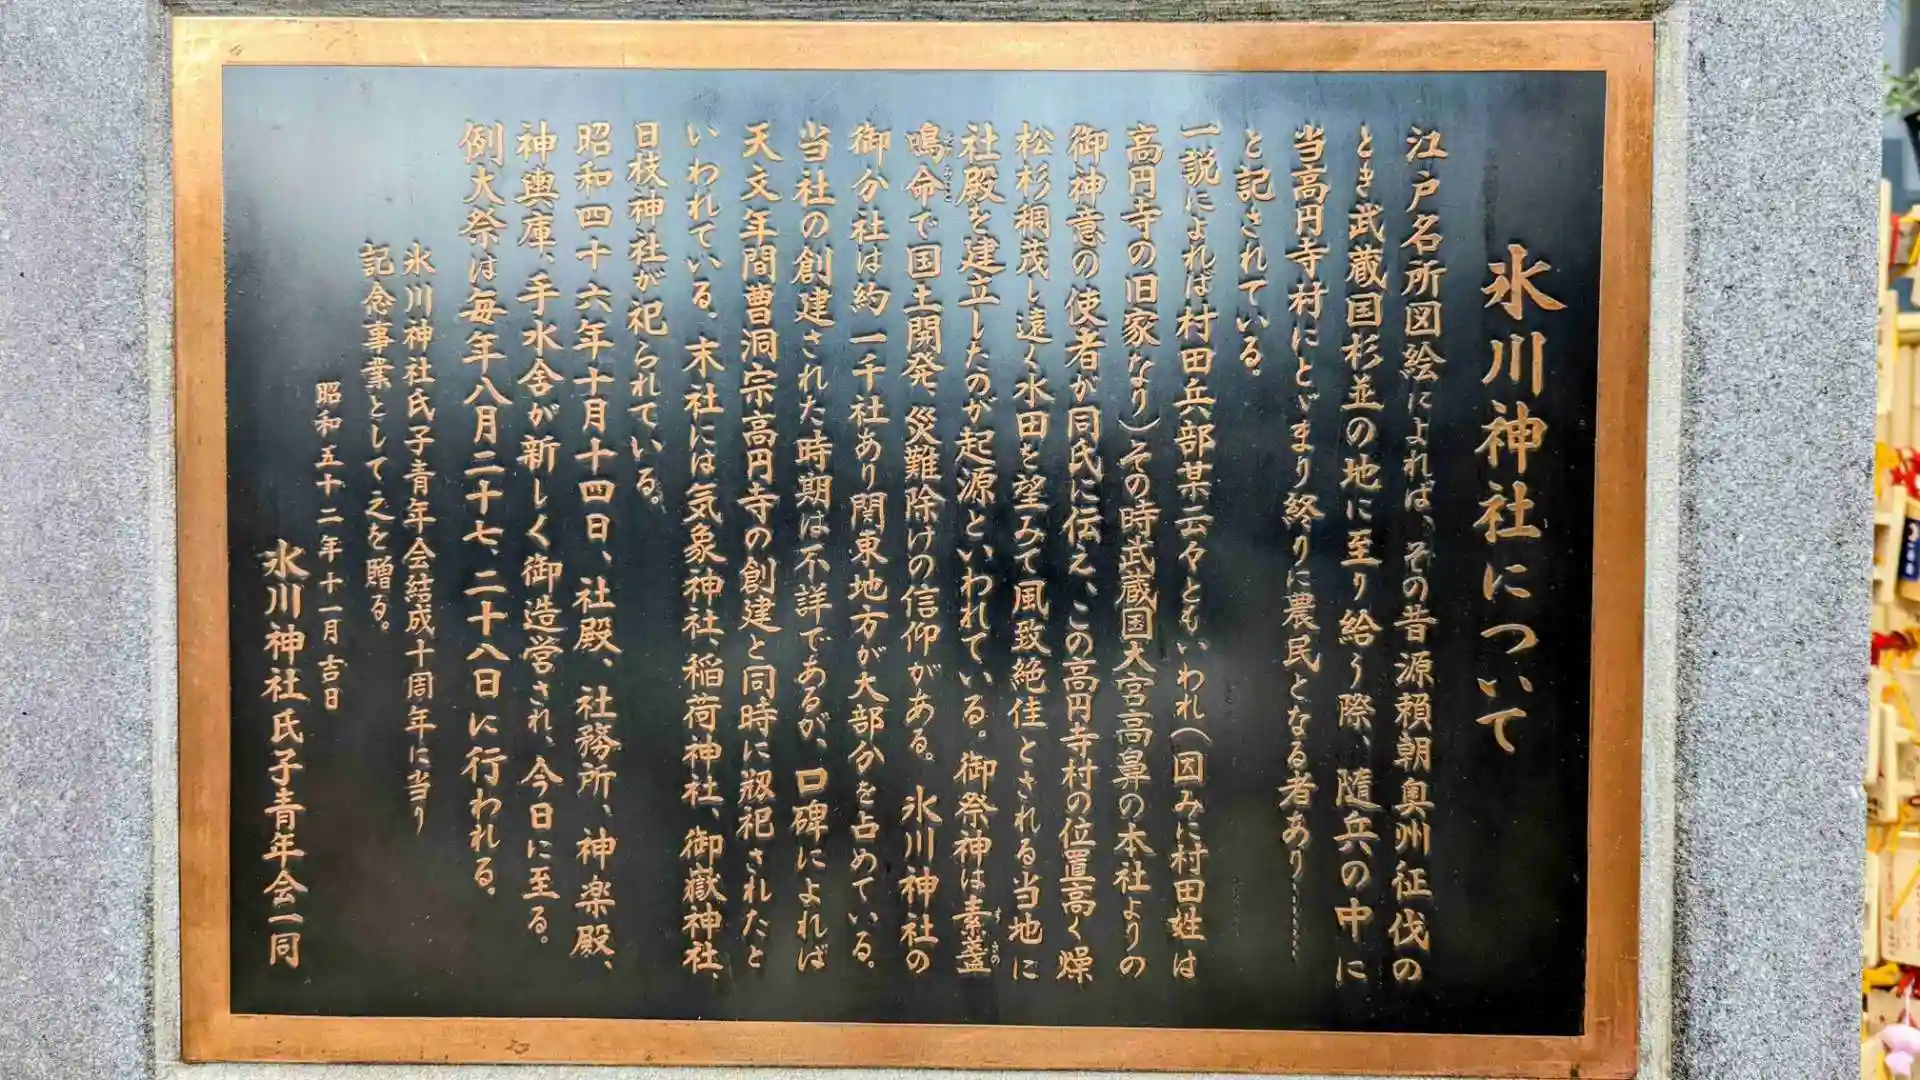 氷川神社について
江戸名所図絵によれば、その昔源頼朝奥州征伐の
とき武蔵国杉並の地に至り給う際、随兵の中に
当高円寺村にとゞまり終りに農民となる者あり……
と記されている。
一説によれば村田兵部某云々ともいわれ(因みに村田姓は
高円寺の旧家なり)その時武蔵国大宮高鼻の本社よりの
御神意の使者が同氏に伝え、この高円寺村の位置高く燥
松杉稠茂し遠く水田を望みて風致絶佳とされる当地に
社殿を建立したのが起源といわれている。御祭神は素盞
鳴命で国土開発、災難除けの信仰がある。氷川神社の
御分社は約一千社あり関東地方が大部分を占めている。
当社の創建された時期は不詳であるが、口碑によれば
天文年間曹洞宗高円寺の創建と同時に剏祀されたと
いわれている。末社には気象神社、稲荷神社、御嶽神社、
日枝神社が祀られている。
昭和四十六年十月十四日、社殿、社務所、神楽殿、
神輿庫、手水舎が新しく御造営され、今日に至る。
例大祭は毎年八月二十七、二十八日に行われる。
氷川神社氏子青年会結成十周年に当り
記念事業として之を贈る。
昭和五十二年十一月吉日
氷川神社氏子青年会一同